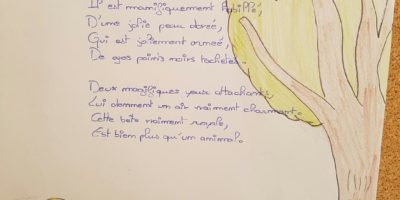 Il est magnifiquement habillé,
D'une jolie peau dorée,
Qui est joliement ornée,
De gros points noirs tachetés.
Deux magnifiques yeux attachants,
Lui donnent un air vraiment charmant.
Cette bête vraiment royale,
Est bien plus qu'un animal.